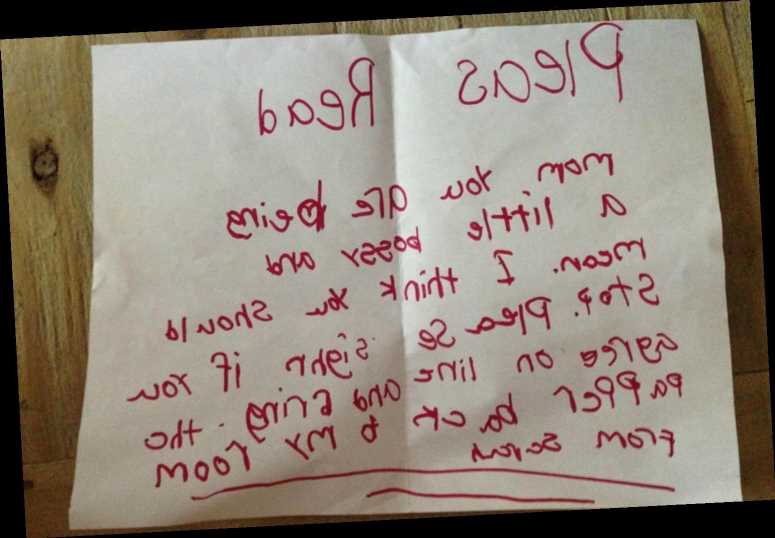 Pleas Read
mom you are being
a little bossy and
mean. I think you should
Stop. Please sighn if you
agree on line and bring. the
papper back to my room
From